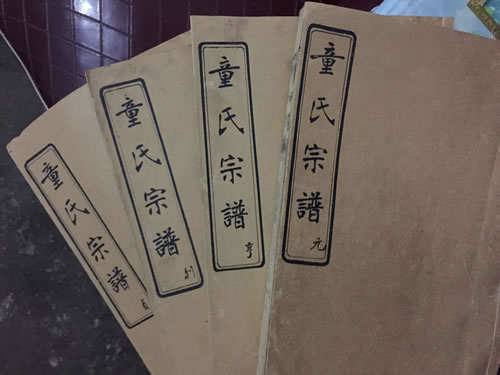 童氏宗譜 元
童氏宗譜 亨
童氏宗譜 利
童氏宗譜